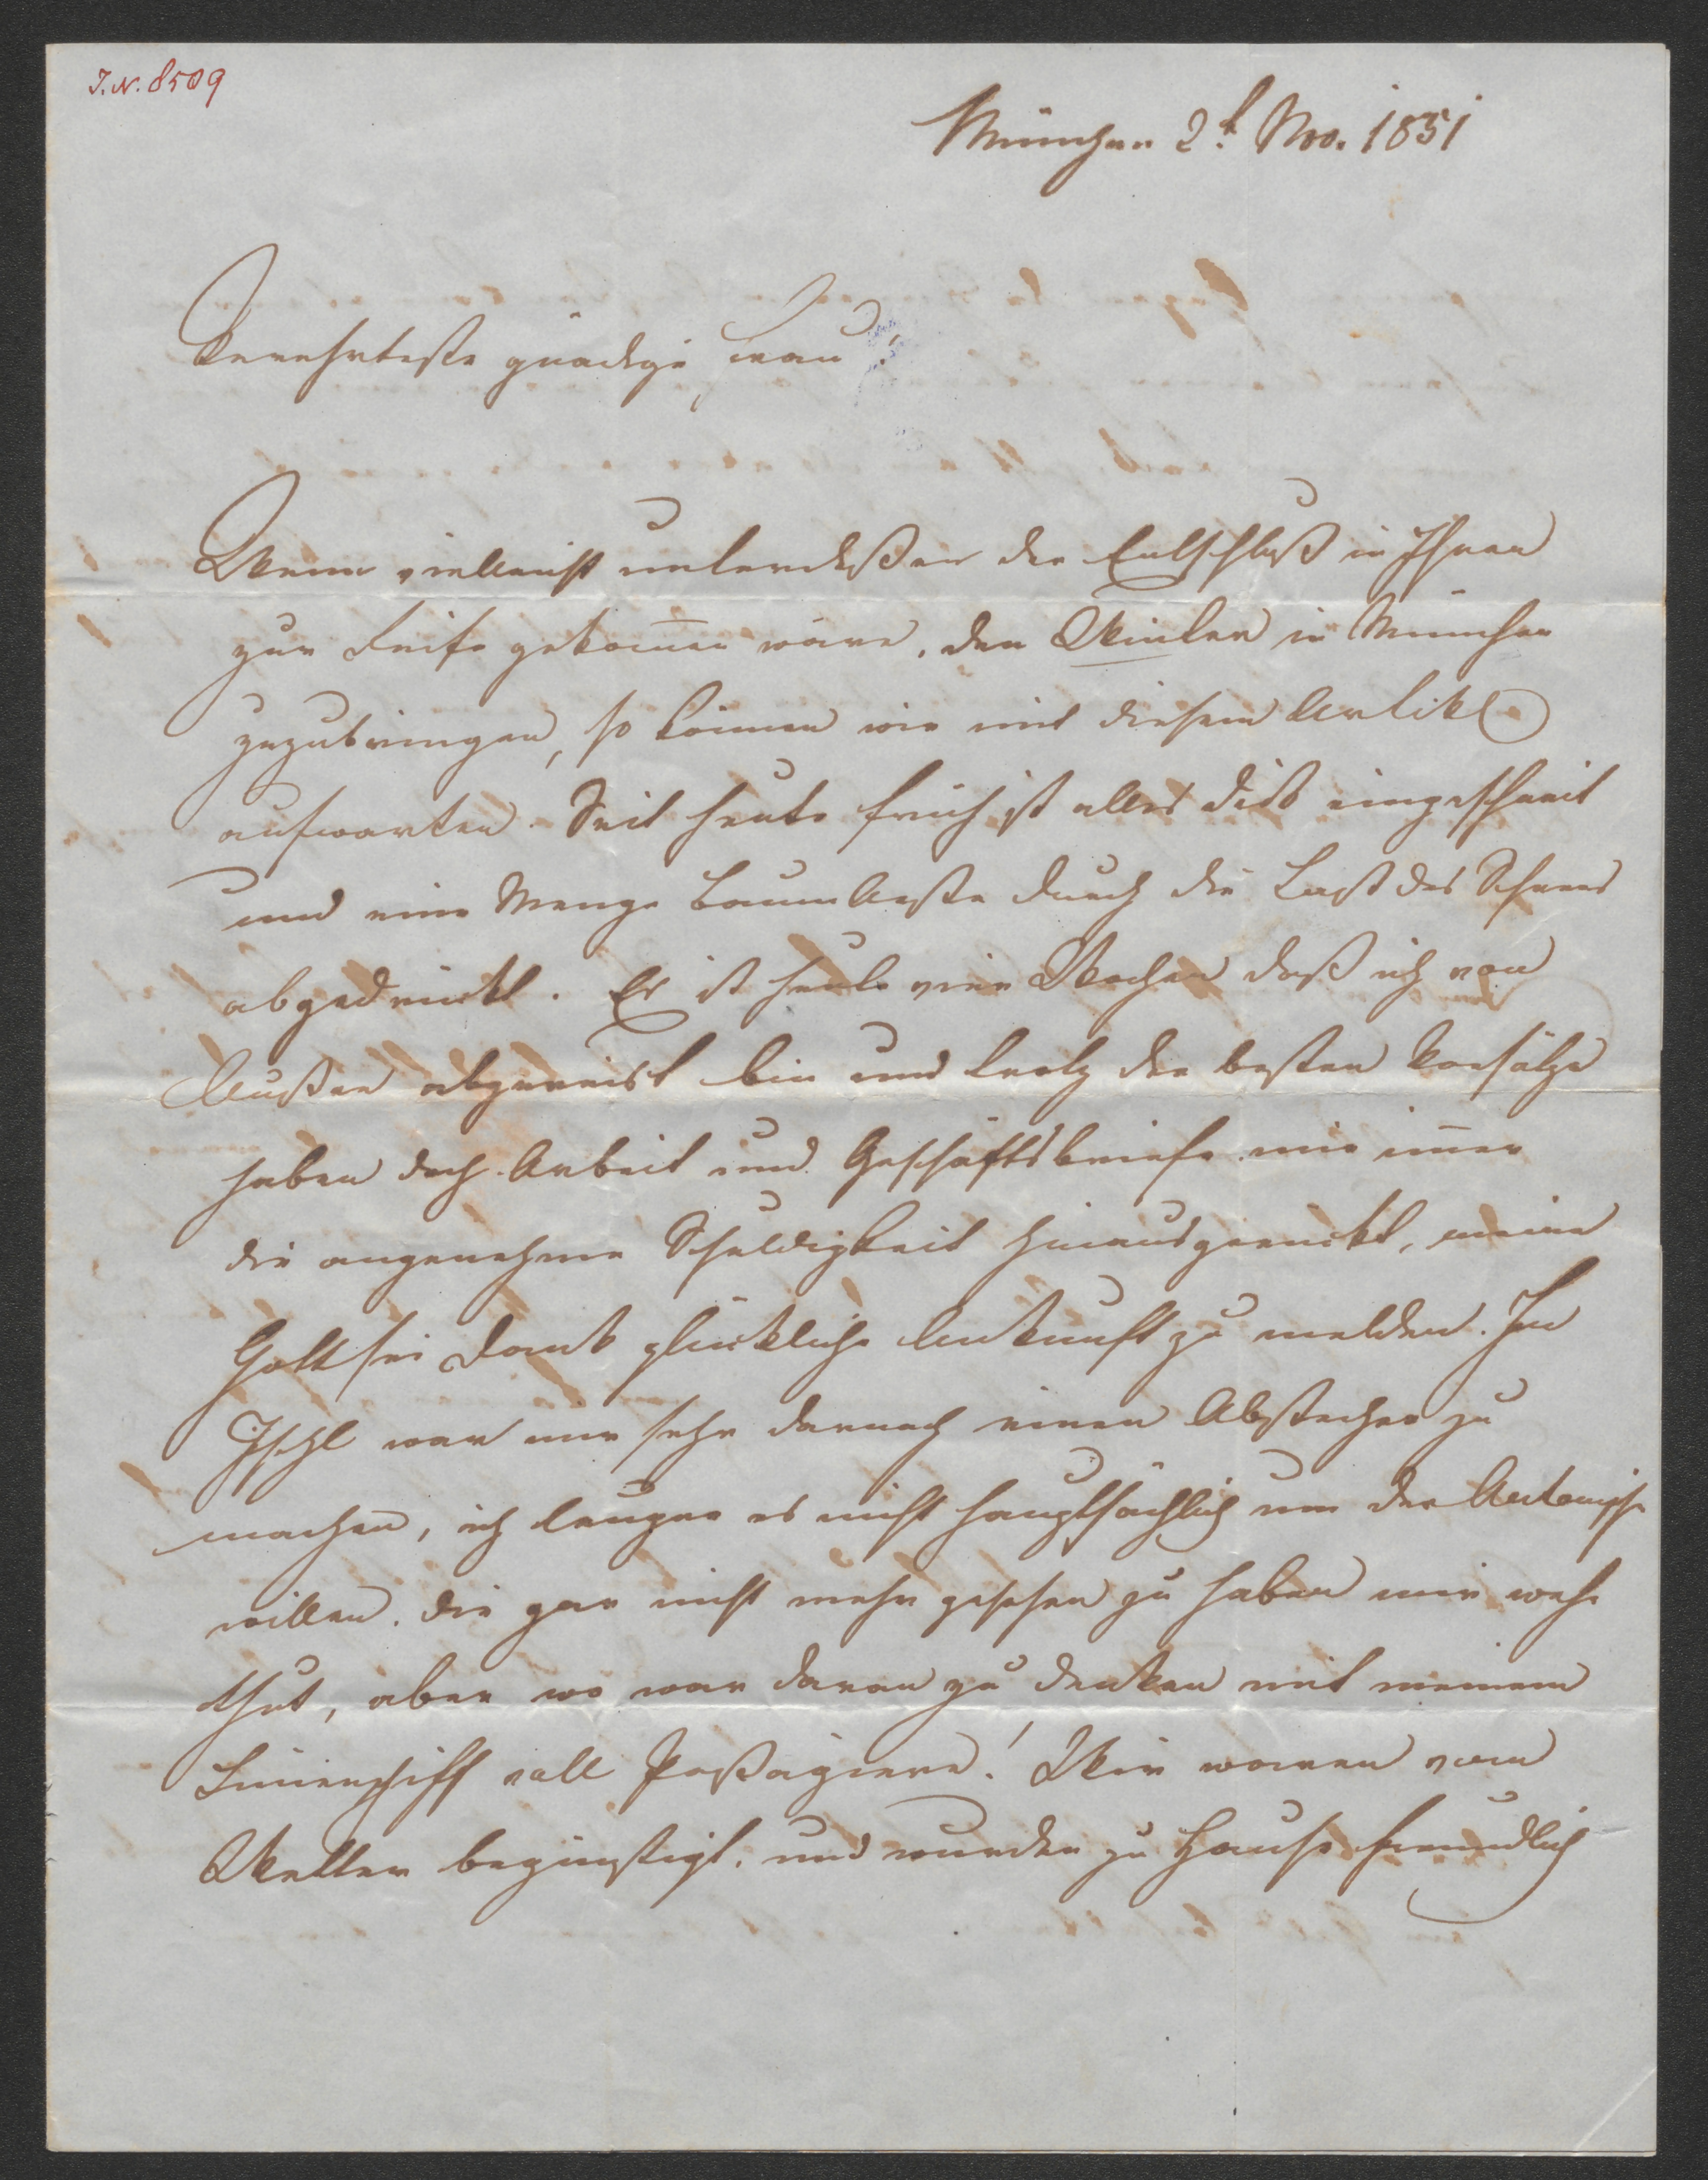 I.N. 8509
München 2t. Nov. 1851
Verehrteste gnädige Frau!
Wenn vielleicht unterdeßen der Entschluß in Ihnen
zur Reife gekom̅en wäre, den Winter in München
zuzubringen, so können wir mit diesem Artikel
aufwarten. Seit heute früh ist alles dick eingeschneit
und eine Menge Baum Aeste durch die Last des Schnees
abgedrückt. Es ist heute vier Wochen daß ich von
Außee abgereist bin und trotz der besten Vorsätze
haben doch Arbeit und Geschäftsbriefe mir im̅er
die angenehme Schuldigkeit hinausgerückt, meine
Gott sei Dank glückliche Ankunft zu melden. In
Ischl war mir sehr darnach einen Abstecher zu
machen, ich leugne es nicht hauptsächlich um der
willen, die gar nicht mehr gesehen zu haben mir wehe
thut, aber wo war daran zu denken mit meinem
Linienschiff voll Paßagiere! Wir waren vom
Wetter begünstigt, und wurden zu Hause freundlich